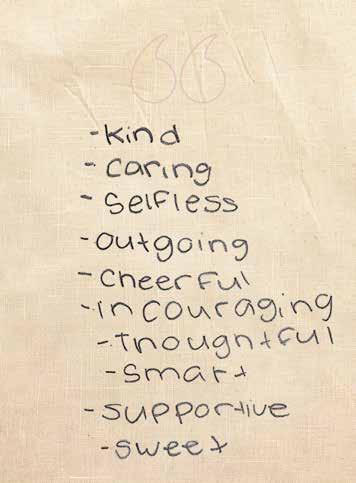 -kind
-caring
-selfless
-outgoing
-cheerful
-incouraging
-thoughtful
-smart
-supportive
-sweet